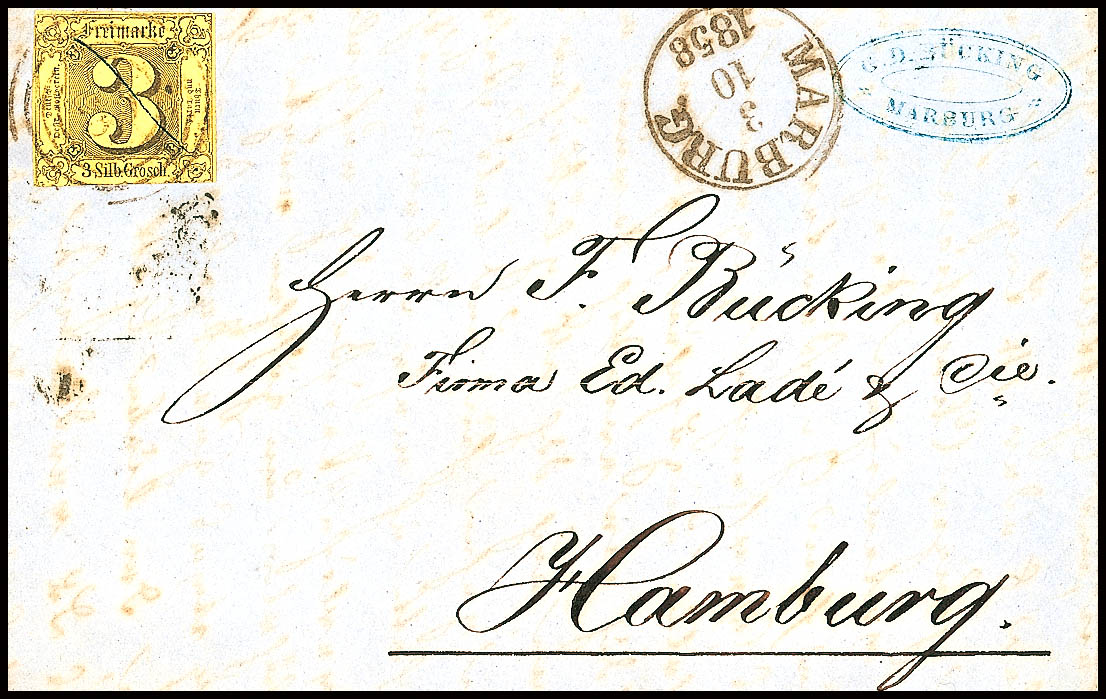 Freimarke
3
3 Silb. Grosch.
Thurn
und Taxis
MARBURG.
3
10
1858
G. D. BÜCKING
MARBURG
Herrn F. Bücking
Firma Ed. Ladé & Cie.
Hamburg.